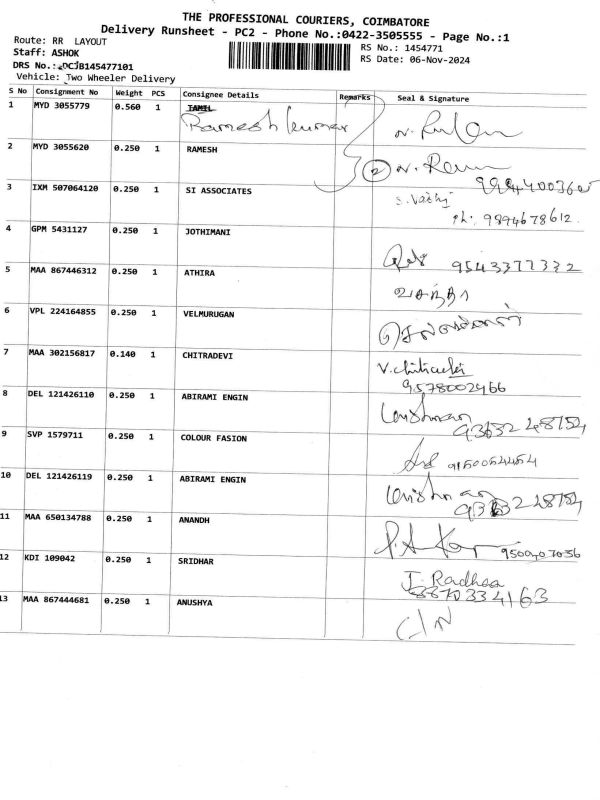 THE PROFESSIONAL COURIERS, COIMBATORE
Delivery Runsheet - PC2 - Phone No.:0422-3505555 - Page No.:1
Route: RR LAYOUT
RS No.: 1454771
Staff: ASHOK
RS Date: 06-Nov-2024
DRS No.: DCJB145477101
Vehicle: Two Wheeler Delivery
S No Consignment No Weight PCS Consignee Details Remarks Seal & Signature
1 MYD 3055779 0.560 1 TAMIL
Ramesh kumar
2 MYD 3055620 0.250 1 RAMESH
② N. Ram
3 IXM 507064120 0.250 1 SI ASSOCIATES
Ph: 9894678612.
4 GPM 5431127 0.250 1 JOTHIMANI
9543377332
5 MAA 867446312 0.250 1 ATHIRA
வசந்தா
6 VPL 224164855 0.250 1 VELMURUGAN
7 MAA 302156817 0.140 1 CHITRADEVI
V. chitradevi
9578002966
8 DEL 121426110 0.250 1 ABIRAMI ENGIN
Lakshmanan
9 SVP 1579711 0.250 1 COLOUR FASION
9150054454
10 DEL 121426119 0.250 1 ABIRAMI ENGIN
11 MAA 650134788 0.250 1 ANANDH
12 KDI 109042 0.250 1 SRIDHAR
J. Radhaa
8870334163
13 MAA 867444681 0.250 1 ANUSHYA
C/N